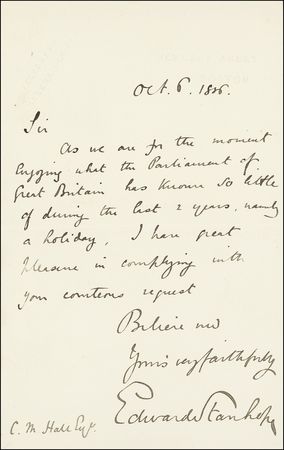 Oct. 6. 1886.
Sir
As we are for the moment
enjoying what the Parliament of
Great Britain has known so little
of during the last 2 years, namely
a holiday, I have great
pleasure in complying with
your courteous request
Believe me
Yours very faithfully
Edward Stanhope
C. M. Hall Esqr.